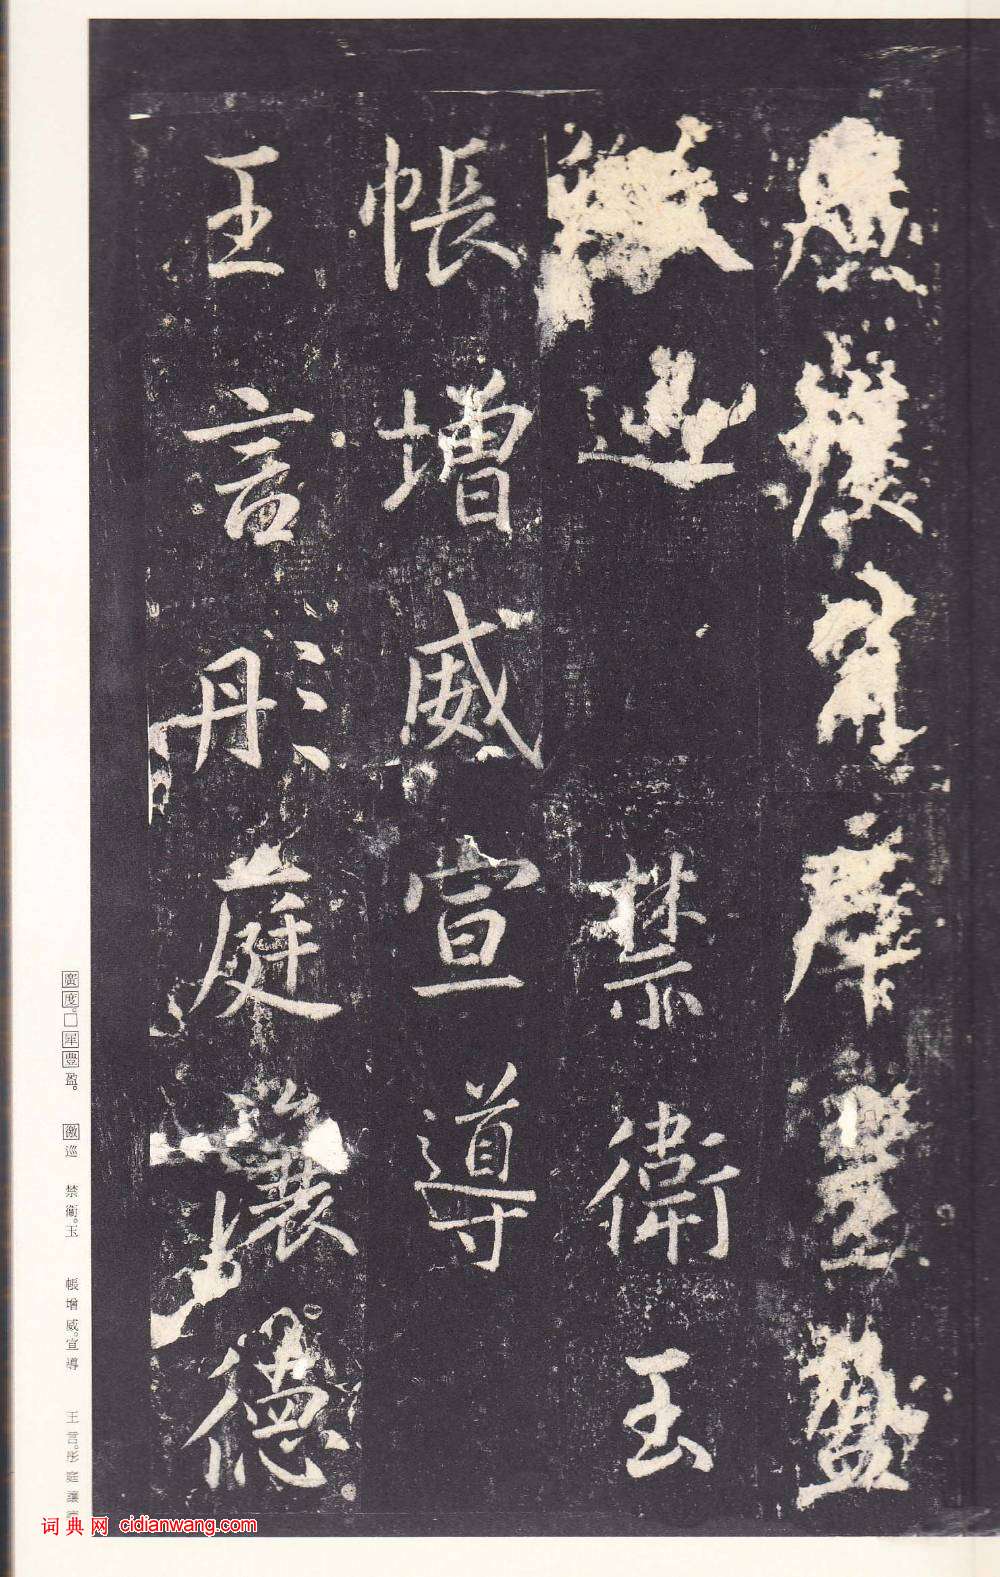 廣度□犀豐盈
徼巡 禁衛玉
帳增威宣導
王言彤庭讓德
廣度。□犀豐盈。 徼巡 禁衛。玉 帳增威。宣導 王言。彤庭讓德
词典网 cidianwang.com